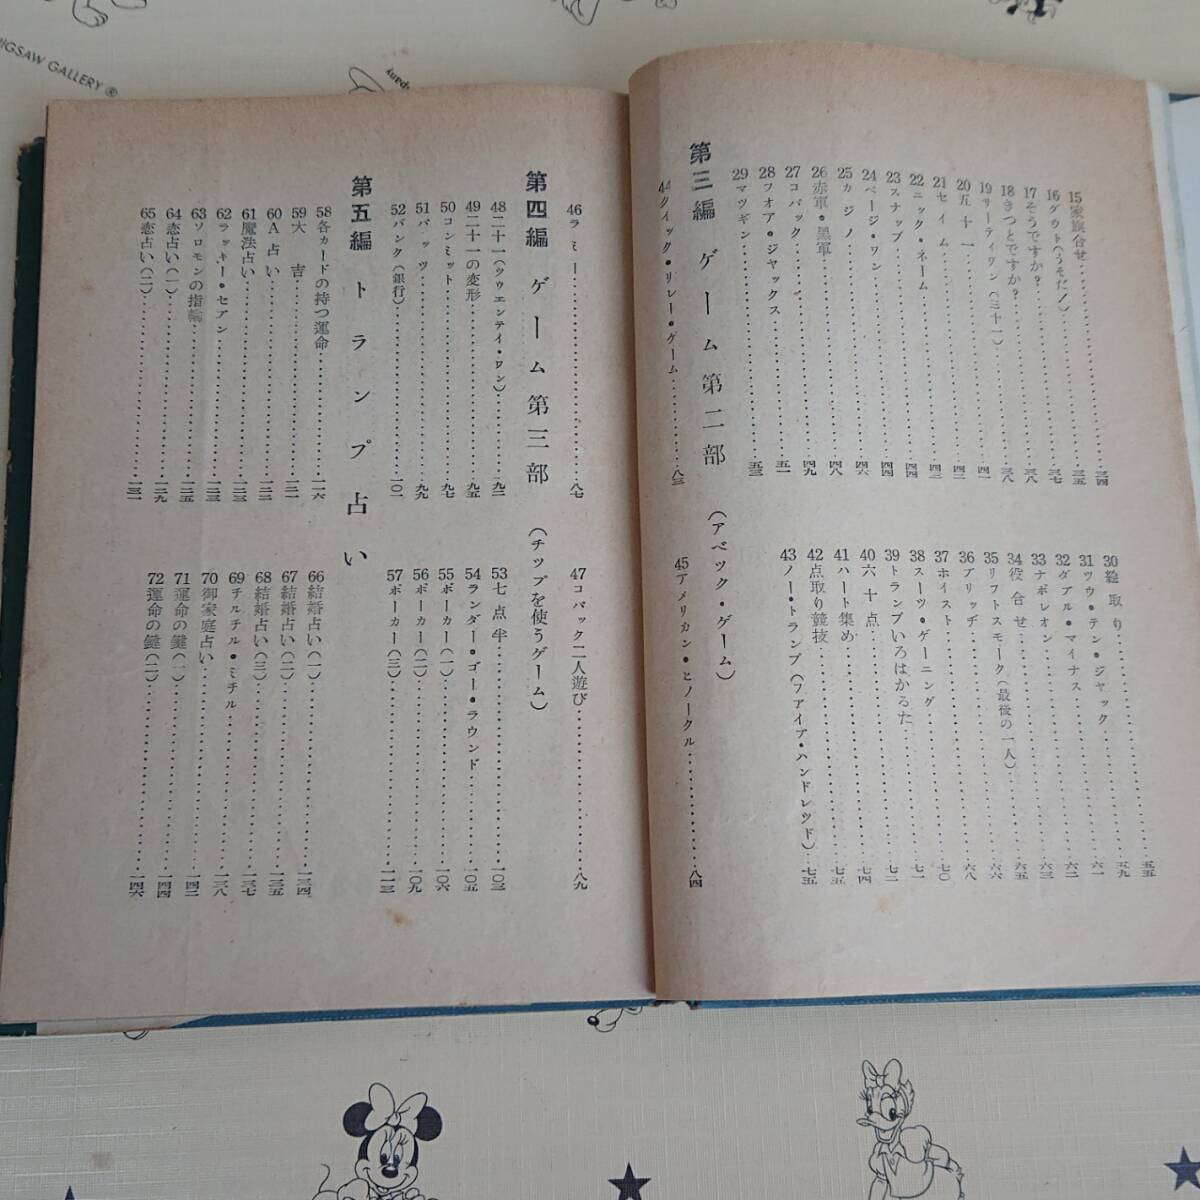 15 家族合せ……三四
16 ダウト(うそだ!)……三五
17 そうですか?……三七
18 きつとですか?……三八
19 サーティワン(三十一)……三八
20 五十一……四一
21 セイム……四二
22 ニック・ネーム……四三
23 スナップ……四四
24 ページ・ワン……四四
25 カジノ……四六
26 赤軍・黒軍……四八
27 コパック……四九
28 フオア・ジャックス……五一
29 マツギン……五三
30 縫取り……五五
31 ツウ・テン・ジャック……五九
32 ダブル・マイナス……六一
33 ナポレオン……六二
34 役合せ……六三
35 リフトスモーク(最後の一人)……六五
36 ブリッヂ……六六
37 ホイスト……六八
38 スーツ・ゲーニング……七〇
39 トランプいろはかるた……七一
40 六十点……七二
41 ハート集め……七四
42 点取り競技……七五
43 ノー・トランプ(フアイア・ハンドレッド)……七五
第三編 ゲーム第二部 (アベック・ゲーム)
44 クイック・リレー・ゲーム……八三
45 アメリカン・ピノークル……八四
46 ラミー……八七
47 コパック二人遊び……八九
第四編 ゲーム第三部 (チップを使うゲーム)
48 二十一(ツウエンテイ・ワン)……九二
49 二十一の変形……九五
50 コンミット……九七
51 パッツ……九九
52 バンク(銀行)……一〇一
53 七点半……一〇三
54 ランダー・ゴー・ラウンド……一〇五
55 ポーカー(一)……一〇六
56 ポーカー(二)……一〇九
57 ポーカー(三)……一一三
第五編 トランプ占い
58 各カードの持つ運命……一一六
59 大吉……一二一
60 A占い……一二二
61 魔法占い……一二三
62 ラッキー・セブン……一二三
63 ソロモンの指輪……一二五
64 恋占い(一)……一二九
65 恋占い(二)……一三一
66 結婚占い(一)……一三四
67 結婚占い(二)……一三五
68 結婚占い(三)……一三七
69 チルチル・ミチル……一三八
70 御家庭占い……一四二
71 運命の鍵(一)……一四四
72 運命の鍵(二)……一四六
JIGSAW GALLERY ®